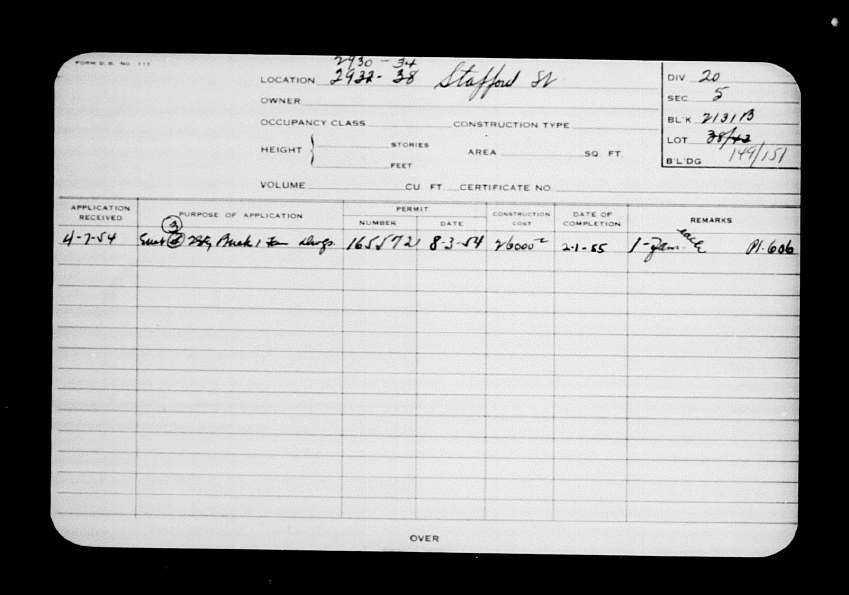 FORM S.E. NO. 111
2930 - 34
LOCATION 2932- 38 Stafford St
DIV 20
OWNER
SEC 5
OCCUPANCY CLASS CONSTRUCTION TYPE
BL'K 2131B
HEIGHT STORIES AREA SQ FT.
LOT 38/43
149/151
FEET
B'L'DG
VOLUME CU. FT. CERTIFICATE NO.
APPLICATION RECEIVED PURPOSE OF APPLICATION PERMIT NUMBER DATE CONSTRUCTION COST DATE OF COMPLETION REMARKS
4-7-54 2 Sty Brick 1 Fam Dwgs. 165572 8-3-54 26000 2-1-55 1-Fam. each Pl. 606
OVER